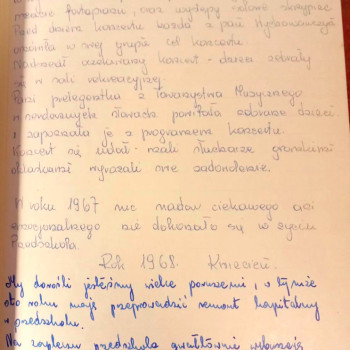 oraz występy solowe skrzypce
Przed datą koncertu każda z pań wychowawczyń
omówiła w swej grupie cel koncertu.
Nadszedł oczekiwany koncert - dzieci zebrały
się w sali rekreacyjnej.
Pani prelegentka z Towarzystwa Muzycznego
w serdecznych słowach powitała zebrane dzieci
i zapoznała je z programem koncertu.
Koncert się udał - mali słuchacze gromkimi
oklaskami wyrażali swe zadowolenie.
W roku 1967 nic nadto ciekawego ani
specjalnego nie dokonało się w życiu
Przedszkola.
Rok 1968. Kwiecień.
My dorośli jesteśmy wielce poruszeni, w tymże
oto roku mają przeprowadzić remont kapitalny
w przedszkolu.
Na zapleczu przedszkola